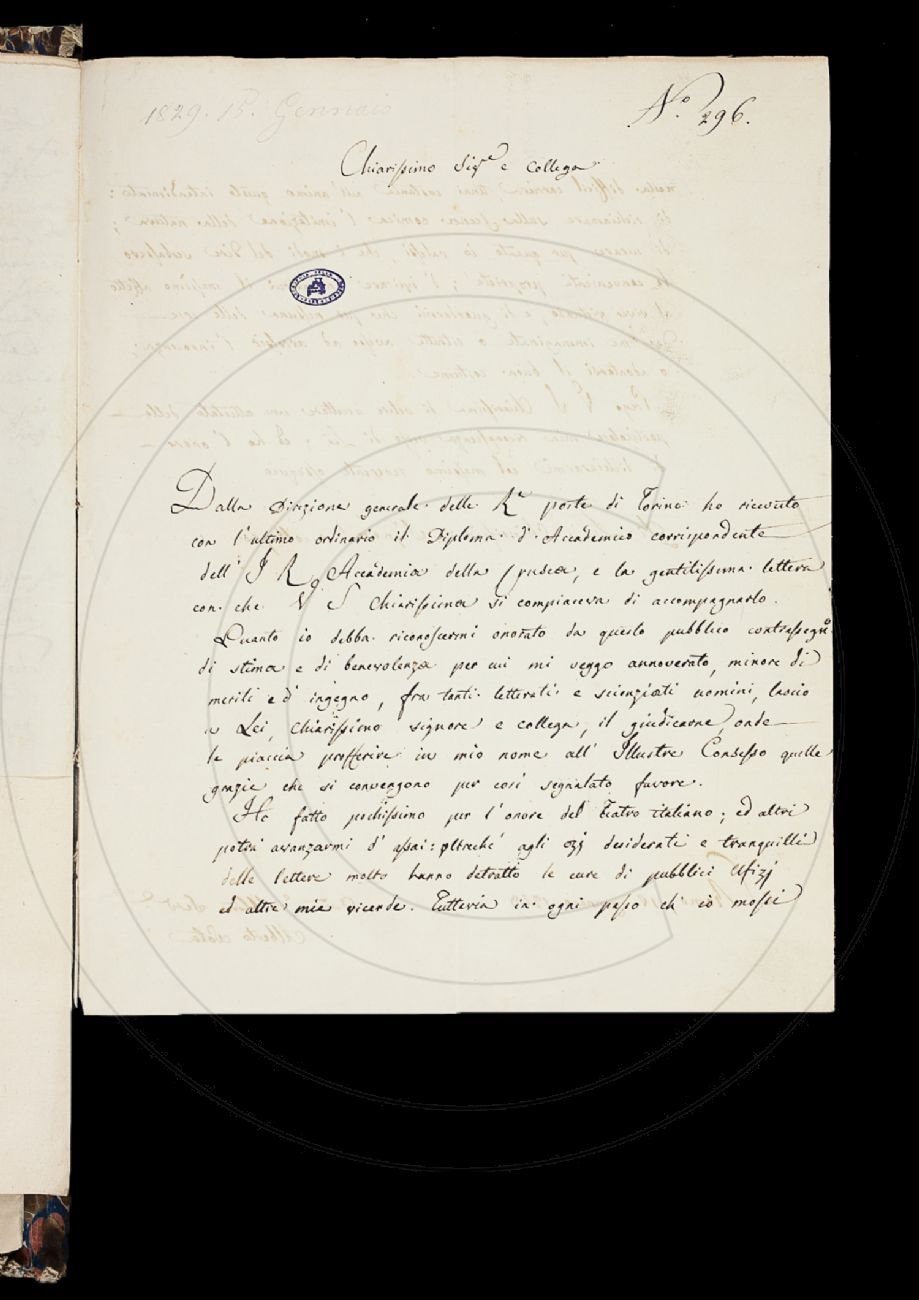 1829. 15. Gennaio
N.o 296.
Chiarissimo Sig.e e Collega
Dalla Direzione generale delle R.e poste di Torino ho ricevuto
con l'ultimo ordinario il Diploma d'Accademico corrispondente
dell' I R Accademia della Crusca, e la gentilissima lettera
con che V S Chiarissima si compiaceva di accompagnarlo.
Quanto io debba riconoscermi onorato da questo pubblico contrassegno
di stima e di benevolenza per cui mi veggo annoverato, minore di
meriti e d'ingegno, fra tanti letterati e scienziati uomini, lascio
a Lei, Chiarissimo signore e collega, il giudicarne, onde
le piaccia profferire in mio nome all' Illustre Consesso quelle
grazie che si convengono per così segnalato favore.
Ho fatto pochissimo per l'onore del Teatro italiano; ed altri
potrà avanzarmi d'assai: oltreché agli ozj desiderati e tranquilli
delle lettere molto hanno detratto le cure di pubblici Ufizj
ed altre mie vicende. Tuttavia in ogni passo ch' io mossi